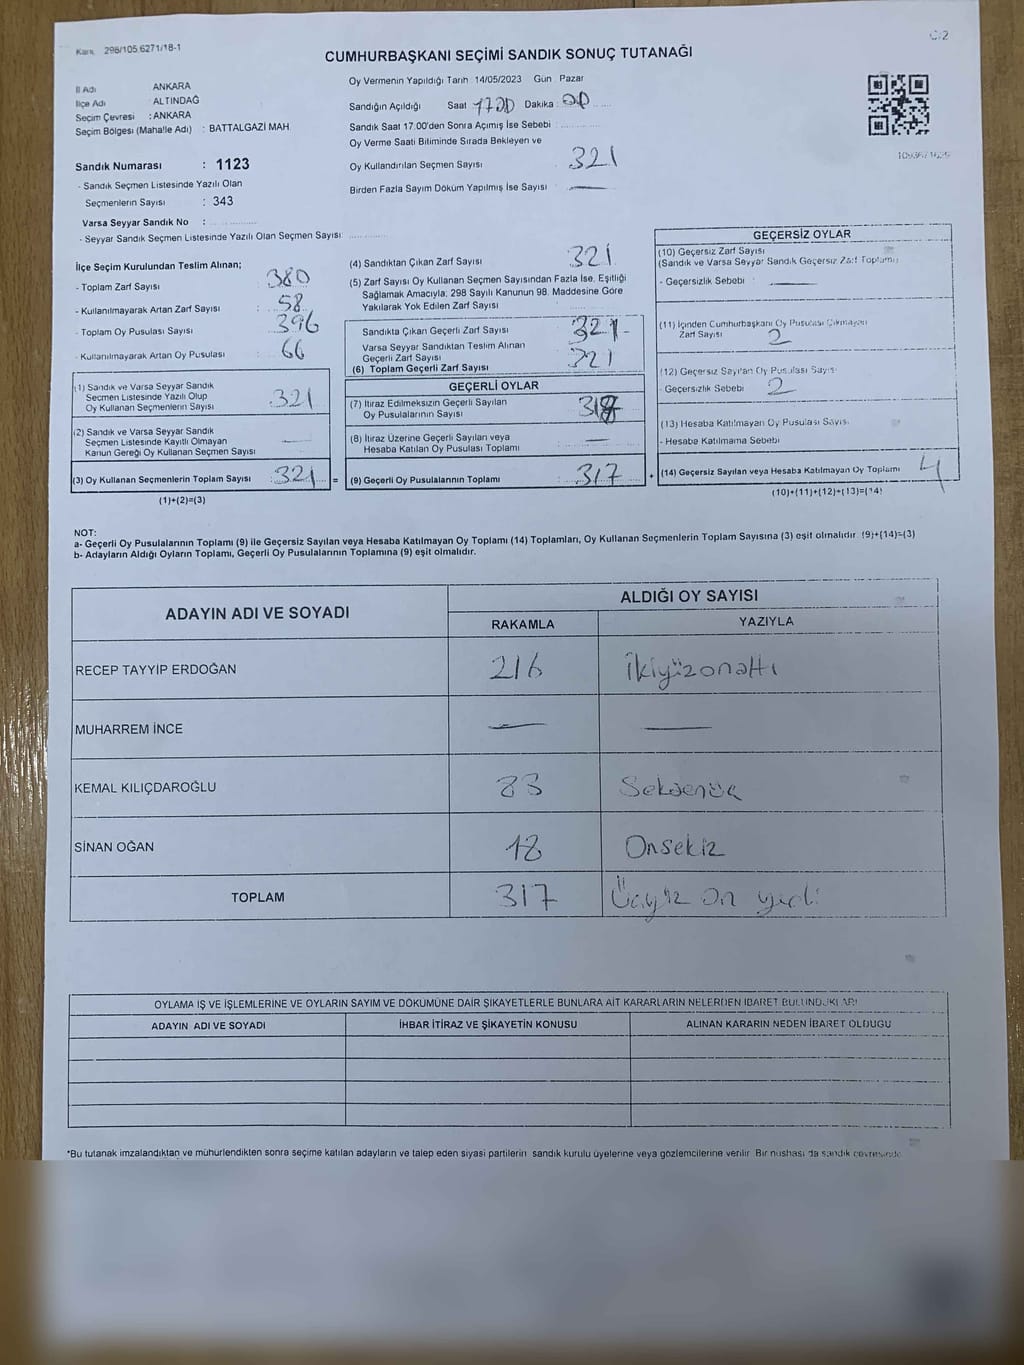 298/105.6271/18-1
CUMHURBAŞKANI SEÇİMİ SANDIK SONUÇ TUTANAĞI
İl Adı ANKARA
İlçe Adı : ALTINDAĞ
Seçim Çevresi : ANKARA
Seçim Bölgesi (Mahalle Adı) : BATTALGAZİ MAH.
Oy Vermenin Yapıldığı Tarih : 14/05/2023 Gün : Pazar
Sandığın Açıldığı Saat 17 00 Dakika : 00
Sandık Saat 17:00'den Sonra Açımış İse Sebebi :
Oy Verme Saati Bitiminde Sırada Bekleyen ve
Oy Kullandırılan Seçmen Sayısı : 321
Birden Fazla Sayım Döküm Yapılmış İse Sayısı : —
Sandık Numarası : 1123
- Sandık Seçmen Listesinde Yazılı Olan
Seçmenlerin Sayısı : 343
Varsa Seyyar Sandık No :
- Seyyar Sandık Seçmen Listesinde Yazılı Olan Seçmen Sayısı:
İlçe Seçim Kurulundan Teslim Alınan;
- Toplam Zarf Sayısı : 380
- Kullanılmayarak Artan Zarf Sayısı : 58
- Toplam Oy Pusulası Sayısı : 396
- Kullanılmayarak Artan Oy Pusulası : 66
(1) Sandık ve Varsa Seyyar Sandık
Seçmen Listesinde Yazılı Olup
Oy Kullanan Seçmenlerin Sayısı : 321
(2) Sandık ve Varsa Seyyar Sandık
Seçmen Listesinde Kayıtlı Olmayan
Kanun Gereği Oy Kullanan Seçmen Sayısı : —
(3) Oy Kullanan Seçmenlerin Toplam Sayısı : 321
(1)+(2)=(3)
(4) Sandıktan Çıkan Zarf Sayısı : 321
(5) Zarf Sayısı Oy Kullanan Seçmen Sayısından Fazla İse, Eşitliği
Sağlamak Amacıyla; 298 Sayılı Kanunun 98. Maddesine Göre
Yakılarak Yok Edilen Zarf Sayısı :
Sandıkta Çıkan Geçerli Zarf Sayısı : 321
Varsa Seyyar Sandıktan Teslim Alınan
Geçerli Zarf Sayısı :
(6) Toplam Geçerli Zarf Sayısı : 321
GEÇERLİ OYLAR
(7) İtiraz Edilmeksizin Geçerli Sayılan
Oy Pusulalarının Sayısı :
(8) İtiraz Üzerine Geçerli Sayılan veya
Hesaba Katılan Oy Pusulası Toplamı : —
= (9) Geçerli Oy Pusulalarının Toplamı : 317
GEÇERSİZ OYLAR
(10) Geçersiz Zarf Sayısı
(Sandık ve Varsa Seyyar Sandık Geçersiz Zarf Toplamı)
- Geçersizlik Sebebi : —
(11) İçinden Cumhurbaşkanı Oy Pusulası Çıkmayan
Zarf Sayısı : 2
(12) Geçersiz Sayılan Oy Pusulası Sayısı
- Geçersizlik Sebebi : 2
(13) Hesaba Katılmayan Oy Pusulası Sayısı
- Hesaba Katılmama Sebebi
+ (14) Geçersiz Sayılan veya Hesaba Katılmayan Oy Toplamı 4
(10)+(11)+(12)+(13)=(14)
NOT:
a- Geçerli Oy Pusulalarının Toplamı (9) ile Geçersiz Sayılan veya Hesaba Katılmayan Oy Toplamı (14) Toplamları, Oy Kullanan Seçmenlerin Toplam Sayısına (3) eşit olmalıdır. (9)+(14)=(3)
b- Adayların Aldığı Oyların Toplamı, Geçerli Oy Pusulalarının Toplamına (9) eşit olmalıdır.
ADAYIN ADI VE SOYADI ALDIĞI OY SAYISI
RAKAMLA YAZIYLA
RECEP TAYYİP ERDOĞAN 216 İkiyüzonaltı
MUHARREM İNCE — —
KEMAL KILIÇDAROĞLU 83 Seksenüç
SİNAN OĞAN 18 Onsekiz
TOPLAM 317 Üçyüz On yedi
OYLAMA İŞ VE İŞLEMLERİNE VE OYLARIN SAYIM VE DÖKÜMÜNE DAİR ŞİKAYETLERLE BUNLARA AİT KARARLARIN NELERDEN İBARET BULUNDUKLARI
ADAYIN ADI VE SOYADI İHBAR İTİRAZ VE ŞİKAYETİN KONUSU ALINAN KARARIN NEDEN İBARET OLDUĞU
*Bu tutanak imzalandıktan ve mühürlendikten sonra seçime katılan adayların ve talep eden siyasi partilerin sandık kurulu üyelerine veya gözlemcilerine verilir. Bir nüshası da sandık çevresinde